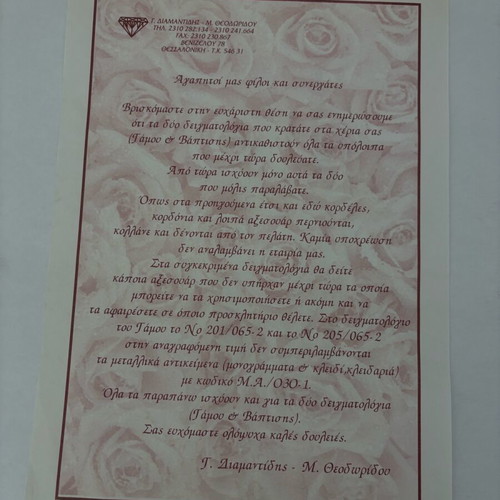 Γ. ΔΙΑΜΑΝΤΙΔΗΣ - Μ. ΘΕΟΔΩΡΙΔΟΥ
ΤΗΛ. 2310 282.134 - 2310 241.664
FAX: 2310 230.862
ΒΕΝΙΖΕΛΟΥ 28
ΘΕΣΣΑΛΟΝΙΚΗ - Τ.Κ. 546 31
Αγαπητοί μας φίλοι και συνεργάτες
Βρισκόμαστε στην ευχάριστη θέση να σας ενημερώσουμε
ότι τα δύο δειγματολόγια που κρατάτε στα χέρια σας
(Γάμου & Βάπτισης) αντικαθιστούν όλα τα υπόλοιπα
που μέχρι τώρα δουλεύατε.
Από τώρα ισχύουν μόνο αυτά τα δύο
που μόλις παραλάβατε.
Όπως στα προηγούμενα έτσι και εδώ κορδέλες,
κορδόνια και λοιπά αξεσουάρ περνιούνται,
κολλάνε και δένονται από τον πελάτη. Καμία υποχρέωση
δεν αναλαμβάνει η εταιρία μας.
Στα συγκεκριμένα δειγματολόγια θα δείτε
κάποια αξεσουάρ που δεν υπήρχαν μέχρι τώρα τα οποία
μπορείτε να τα χρησιμοποιήσετε ή ακόμη και να
τα αφαιρέσετε σε όποιο προσκλητήριο θέλετε. Στο δειγματολόγιο
του Γάμου το Νο 201/065-2 και το Νο 205/065-2
στην αναγραφόμενη τιμή δεν συμπεριλαμβάνονται
τα μεταλλικά αντικείμενα (μονογράμματα & κλειδί,κλειδαριά)
με κωδικό Μ.Α./ΟЗΟ-1.
Όλα τα παραπάνω ισχύουν και για τα δύο δειγματολόγια
(Γάμου & Βάπτισης).
Σας ευχόμαστε ολόψυχα καλές δουλειές.
Γ. Διαμαντίδης - Μ. Θεοδωρίδου